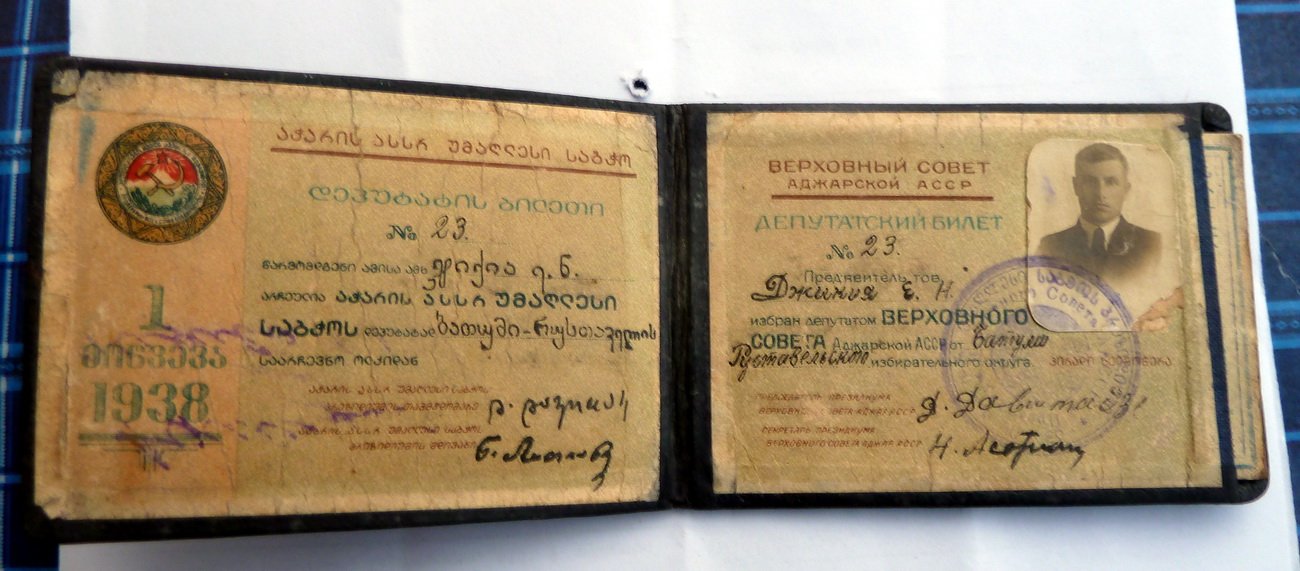 აჭარის ასსრ უმაღლესი საბჭო
დეპუტატის ბილეთი
№ 23.
წარმომდგენი ამისა ამხ ჯიქია ე. ნ.
არჩეულია აჭარის ასსრ უმაღლესი
საბჭოს დეპუტატად ბათუმი-რუსთაველის
საარჩევნო ოლქიდან
აჭარის ასსრ უმაღლესი საბჭოს
აჭარის ასსრ უმაღლესი საბჭოს
1
მოწვევა
1938
ВЕРХОВНЫЙ СОВЕТ
АДЖАРСКОЙ АССР
ДЕПУТАТСКИЙ БИЛЕТ
№ 23.
Предявитель тов.
Джикия Е. Н.
избран депутатом ВЕРХОВНОГО
СОВЕТА Аджарской АССР от Батуми
Руставельского избирательного округа.
ПРЕДСЕДАТЕЛЬ ПРЕЗИДИУМА
ВЕРХОВНОГО СОВЕТА АДЖАР АССР
СЕКРЕТАРЬ ПРЕЗИДИУМА
ВЕРХОВНОГО СОВЕТА АДЖАР АССР